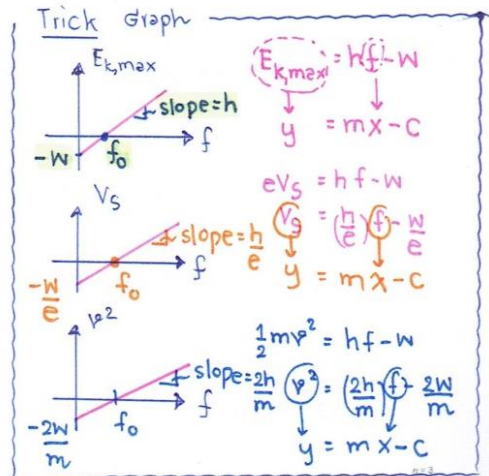 Trick Graph
E_k,max
slope = h
-W
f₀
f
E_k,max = hf - W
y = mx - c
V_s
slope = h/e
-W/e
f₀
f
eV_s = hf - W
V_s = (h/e) f - W/e
y = mx - c
v²
slope = 2h/m
-2W/m
f₀
f
½mv² = hf - W
v² = (2h/m) f - 2W/m
y = mx - c